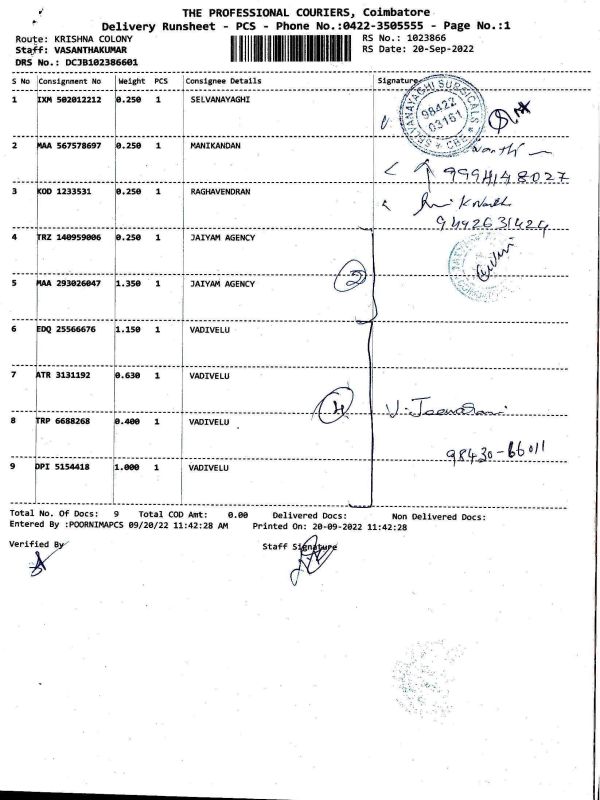 THE PROFESSIONAL COURIERS, Coimbatore
Delivery Runsheet - PCS - Phone No.:0422-3505555 - Page No.:1
Route: KRISHNA COLONY RS No.: 1023866
Staff: VASANTHAKUMAR RS Date: 20-Sep-2022
DRS No.: DCJB102386601
S No Consignment No Weight PCS Consignee Details Signature
1 IXM 502012212 0.250 1 SELVANAYAGHI
SELVANAYAGHI SURGICALS
98422
03161
CBE
2 MAA 567578697 0.250 1 MANIKANDAN
9994148027
3 KOD 1233531 0.250 1 RAGHAVENDRAN
9442631424
4 TRZ 140959006 0.250 1 JAIYAM AGENCY
5 MAA 293026047 1.350 1 JAIYAM AGENCY 2
6 EDQ 25566676 1.150 1 VADIVELU
7 ATR 3131192 0.630 1 VADIVELU
4
8 TRP 6688268 0.400 1 VADIVELU
98430-66011
9 DPI 5154418 1.000 1 VADIVELU
Total No. Of Docs: 9 Total COD Amt: 0.00 Delivered Docs: Non Delivered Docs:
Entered By :POORNIMAPCS 09/20/22 11:42:28 AM Printed On: 20-09-2022 11:42:28
Verified By Staff Signature